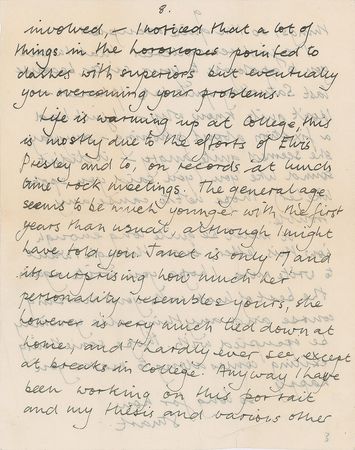 8.
involved, – I noticed that a lot of
things in the horoscopes pointed to
clashes with superiors but eventually
you overcoming your problems.
Life is warming up at College, this
is mostly due to the efforts of Elvis
Presley and to, on records at lunch
time rock meetings. The general age
seems to be much younger with the first
years than usual, although I might
have told you Janet is only 17 and
its surprising how much her
personality resembles yours, she
however is very much tied down at
home, and I hardly ever see, except
at breaks in college. Anyway I have
been working on this portrait
and my thesis and various other
3